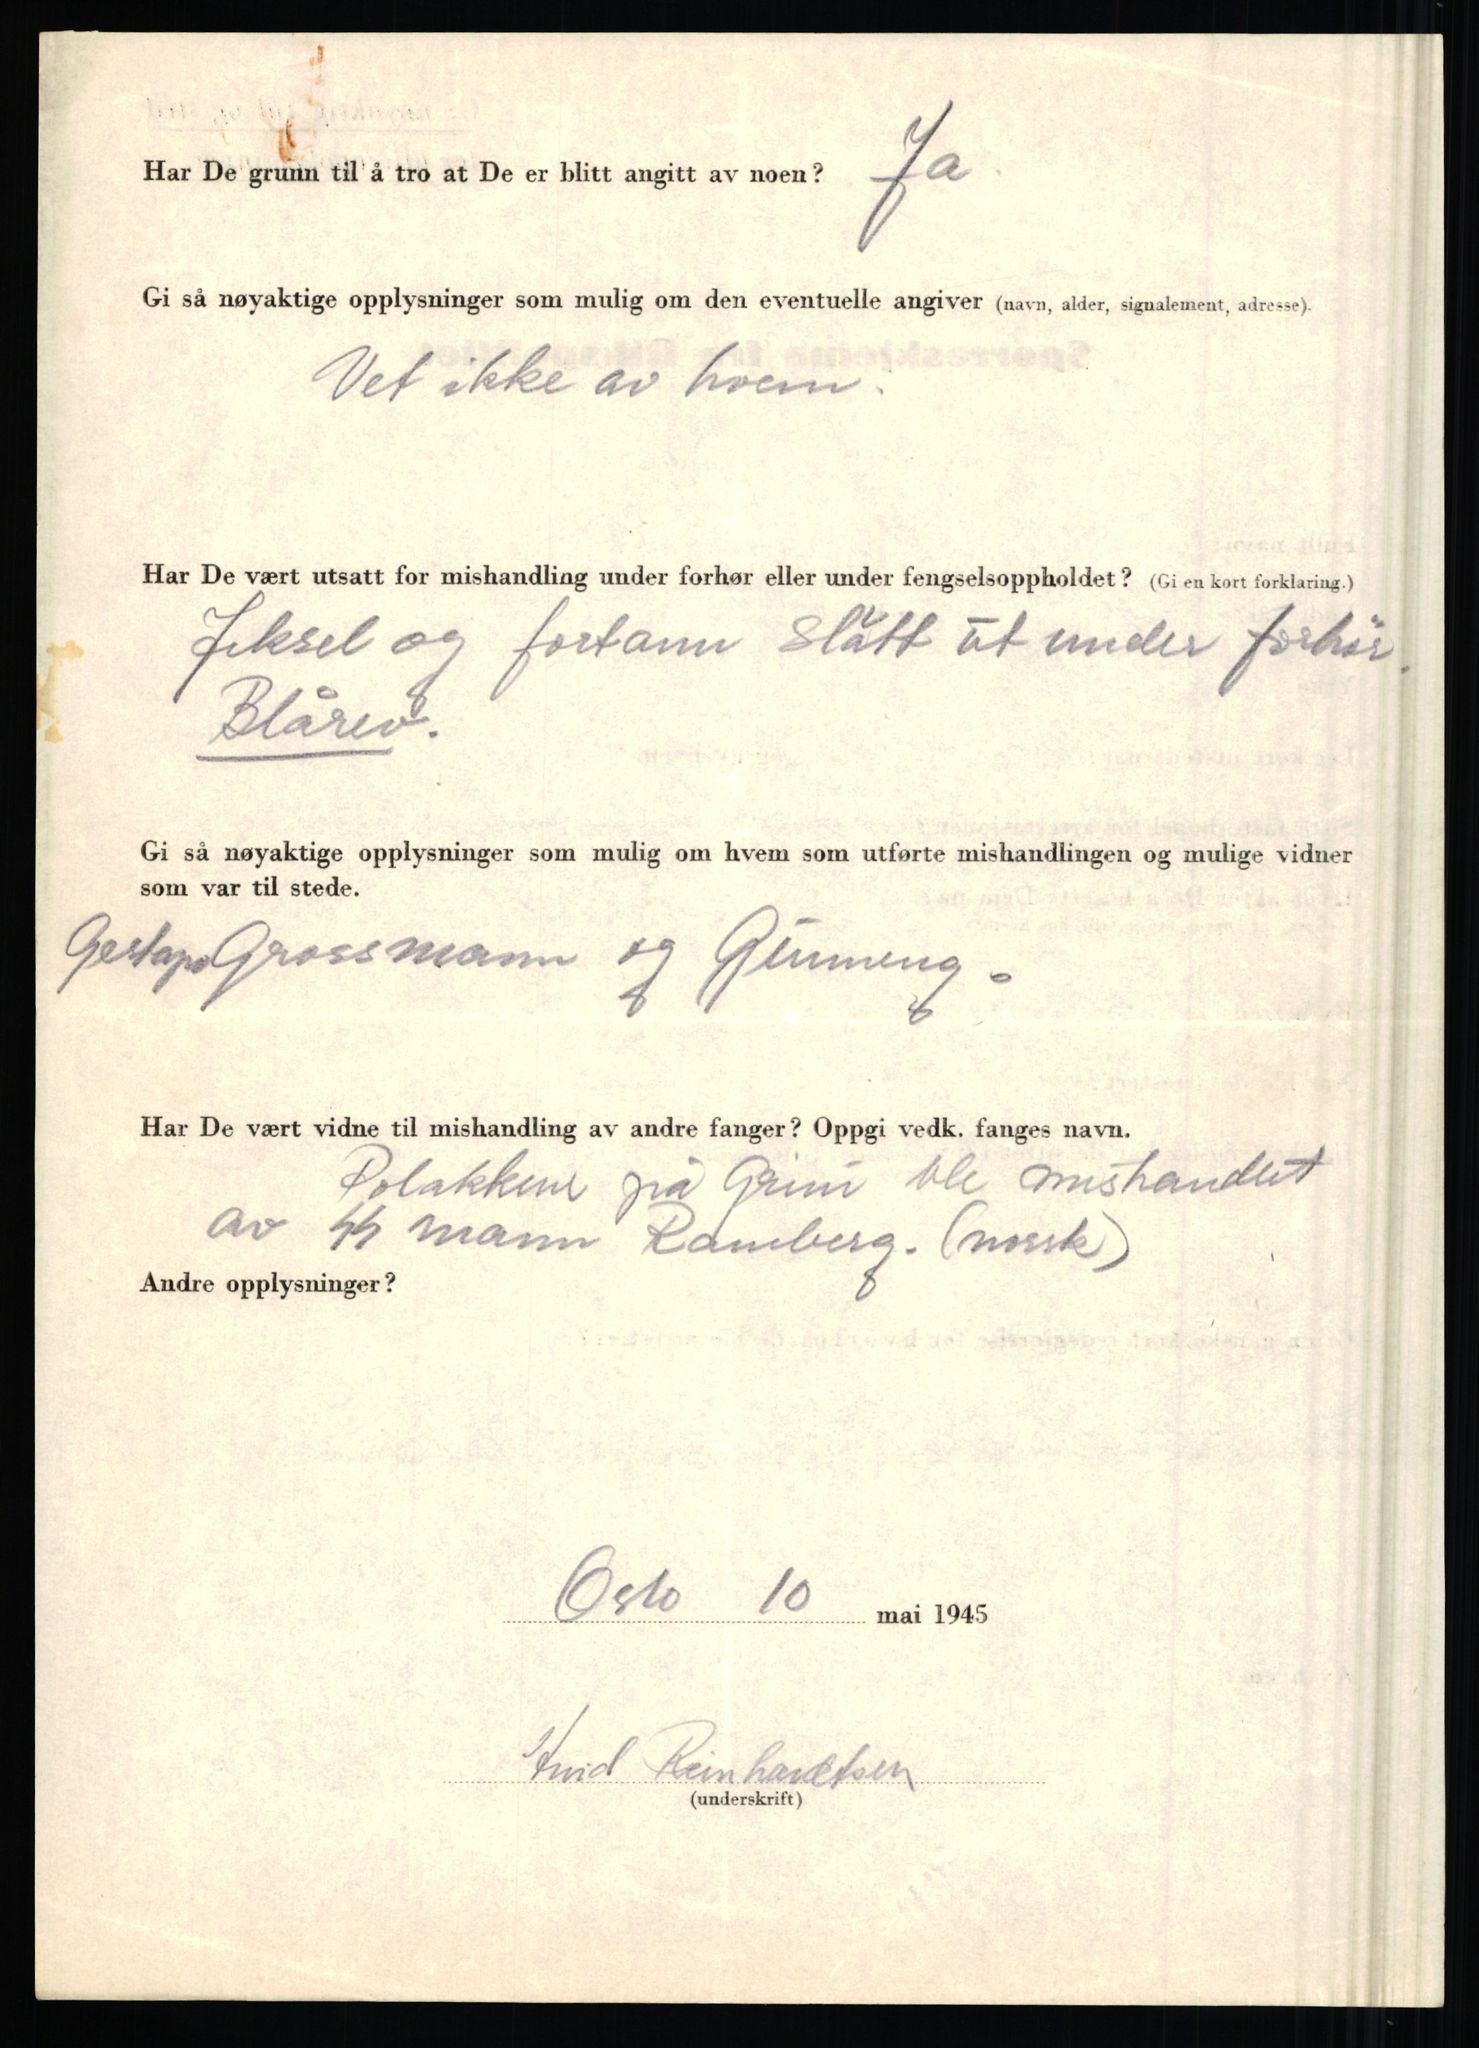 Har De grunn til å tro at De er blitt angitt av noen? Ja
Gi så nøyaktige opplysninger som mulig om den eventuelle angiver (navn, alder, signalement, adresse).
Vet ikke av hvem.
Har De vært utsatt for mishandling under forhør eller under fengselsoppholdet? (Gi en kort forklaring.)
Jeksel og fortann slått ut under forhør.
Blårev.
Gi så nøyaktige opplysninger som mulig om hvem som utførte mishandlingen og mulige vidner
som var til stede.
Gestapo Grossmann og
Har De vært vidne til mishandling av andre fanger? Oppgi vedk. fanges navn.
Polakkene på Grini ble mishandlet
av SS mann Ramberg. (norsk)
Andre opplysninger?
Oslo 10 mai 1945
Reinhardtsen
(underskrift)